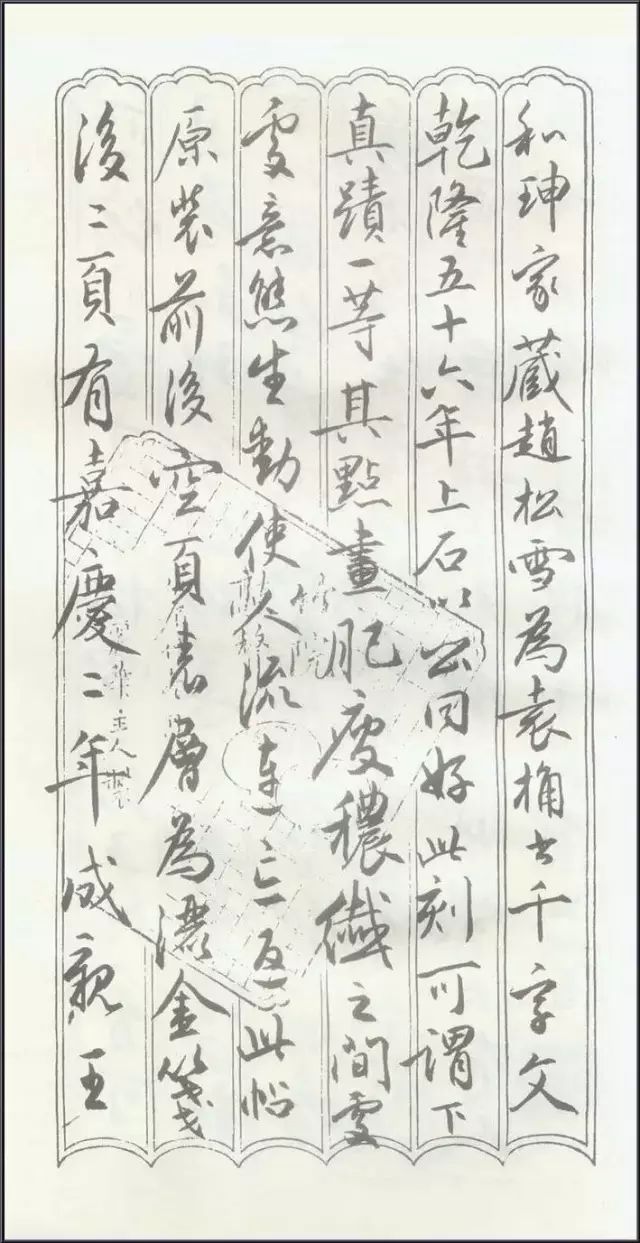 和珅家藏趙松雪為袁桷書千字文
乾隆五十六年上石以公同好此刻可謂下
真蹟一等其點畫肥瘦穠纖之間處
處意態生動使人流連忘返此帖
原裝前後空頁表層為灑金箋
後二頁有嘉慶二年成親王
主人製